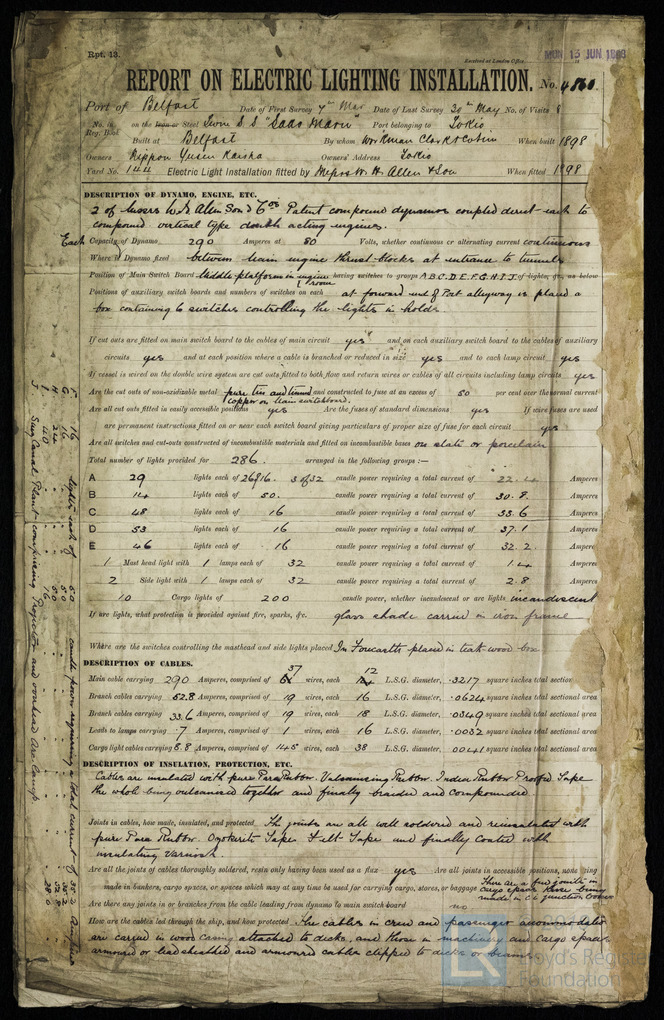 Rpt. 13.
Received at London Office
MON 13 JUN 1898
REPORT ON ELECTRIC LIGHTING INSTALLATION. No. 4860
Port of Belfast Date of First Survey 7th Mar Date of Last Survey 30th May No. of Visits 8
No. in Reg. Book on the Iron or Steel Twin S.S "Sado Maru" Port belonging to Tokio
Built at Belfast By whom Workman Clark & Co Lim When built 1898
Owners Nippon Yusen Kaisha Owners' Address Tokio
Yard No. 144 Electric Light Installation fitted by Messrs W. H. Allen & Son When fitted 1898
DESCRIPTION OF DYNAMO, ENGINE, ETC.
2 of Messrs W. H. Allen Son & Cos Patent compound dynamos coupled direct each to
compound vertical type double acting engines.
Each Capacity of Dynamo 290 Amperes at 80 Volts, whether continuous or alternating current continuous
Where is Dynamo fixed between main engine thrust blocks at entrance to tunnels
Position of Main Switch Board Middle platform in engine room having switches to groups A.B.C.D.E.F.G.H.I.J. of lights, &c., as below
Positions of auxiliary switch boards and numbers of switches on each at forward end of Port alleyway is placed a
box containing 6 switches controlling the lights in holds
If cut outs are fitted on main switch board to the cables of main circuit yes and on each auxiliary switch board to the cables of auxiliary
circuits yes and at each position where a cable is branched or reduced in size yes and to each lamp circuit yes
If vessel is wired on the double wire system are cut outs fitted to both flow and return wires or cables of all circuits including lamp circuits yes
Are the cut outs of non-oxidizable metal pure tin and tinned copper on main switchboard and constructed to fuse at an excess of 50 per cent over the normal current
Are all cut outs fitted in easily accessible positions yes Are the fuses of standard dimensions yes If wire fuses are used
are permanent instructions fitted on or near each switch board giving particulars of proper size of fuse for each circuit yes
Are all switches and cut-outs constructed of incombustible materials and fitted on incombustible bases on slate or porcelain
Total number of lights provided for 286. arranged in the following groups :—
A 29 lights each of 26 of 16. 3 of 32 candle power requiring a total current of 22.4 Amperes
B 14 lights each of 50. candle power requiring a total current of 30.8. Amperes
C 48 lights each of 16 candle power requiring a total current of 33.6 Amperes
D 53 lights each of 16 candle power requiring a total current of 37.1 Amperes
E 46 lights each of 16 candle power requiring a total current of 32.2. Amperes
1 Mast head light with 1 lamps each of 32 candle power requiring a total current of 1.4 Amperes
2 Side light with 1 lamps each of 32 candle power requiring a total current of 2.8 Amperes
10 Cargo lights of 200 candle power, whether incandescent or arc lights incandescent
If arc lights, what protection is provided against fire, sparks, &c. glass shade carried in iron frame
Where are the switches controlling the masthead and side lights placed In Foucastle placed in teak wood box
DESCRIPTION OF CABLES.
Main cable carrying 290 Amperes, comprised of 37 wires, each 12 L.S.G. diameter, .3217 square inches total sectional area
Branch cables carrying 52.8 Amperes, comprised of 19 wires, each 16 L.S.G. diameter, .0624 square inches total sectional area
Branch cables carrying 33.6 Amperes, comprised of 19 wires, each 18 L.S.G. diameter, .0349 square inches total sectional area
Leads to lamps carrying 7 Amperes, comprised of 1 wires, each 16 L.S.G. diameter, .0032 square inches total sectional area
Cargo light cables carrying 8.8 Amperes, comprised of 145 wires, each 38 L.S.G. diameter, .0041 square inches total sectional area
DESCRIPTION OF INSULATION, PROTECTION, ETC.
Cables are insulated with pure Para Rubber. Vulcanizing Rubber. Indea Rubber Proofed Tape
the whole being vulcanized together and finally braided and compounded
Joints in cables, how made, insulated, and protected The joints are all well soldered and reinsulated with
pure Para Rubber. Ozokerite Tape Felt Tape and finally Coated with
insulating Varnish.
Are all the joints of cables thoroughly soldered, resin only having been used as a flux yes Are all joints in accessible positions, none being
made in bunkers, cargo spaces, or spaces which may at any time be used for carrying cargo, stores, or baggage There are a few joints in cargo spaces these being made in C.I. junction boxes
Are there any joints in or branches from the cable leading from dynamo to main switch board no
How are the cables led through the ship, and how protected The cables in crew and passenger accommodation
are carried in wood casing attached to decks, and those in machinery and cargo spaces
armoured or lead sheathed and armoured cables clipped to decks or beams
F 16 lights each of 50 candle power requiring a total current of 35.2 Amperes
G 16 50
H 24 50 52.8
I 40 16 28.0
J Suez Canal Plant comprising Projector and overhead Arc Lamp.
LR
Lloyd's Register
Foundation